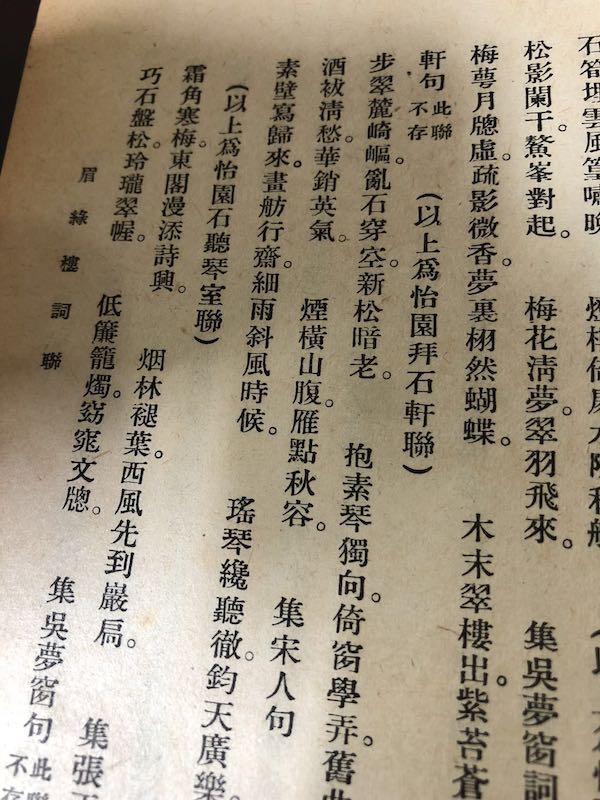 石筍埋雲風篁嘯晚
松影闌干鰲峯對起。 梅花淸夢。翠羽飛來。 集吳夢窗詞
梅夢月牕虛疏影微香。夢裏栩然蝴蝶。 木末翠樓出紫苔蒼
軒句 此聯不存 (以上爲怡園拜石軒聯)
步翠麓崎嶇。亂石穿空。新松暗老。 抱素琴獨向。倚窗學弄。舊曲
酒祓淸愁。華銷英氣。 煙橫山腹。雁點秋容。 集宋人句
素壁寫歸來。畫舫行齋。細雨斜風時候。 瑤琴纔聽徹。鈞天廣樂
(以上爲怡園石聽琴室聯)
霜角寒梅。東閣漫添詩興。 烟林褪葉。西風先到巖扃。 集張
巧石盤松。玲瓏翠幄。 低簾籠燭。窈窕文牕。 集吳夢窗句 此聯不存
眉綠樓詞聯